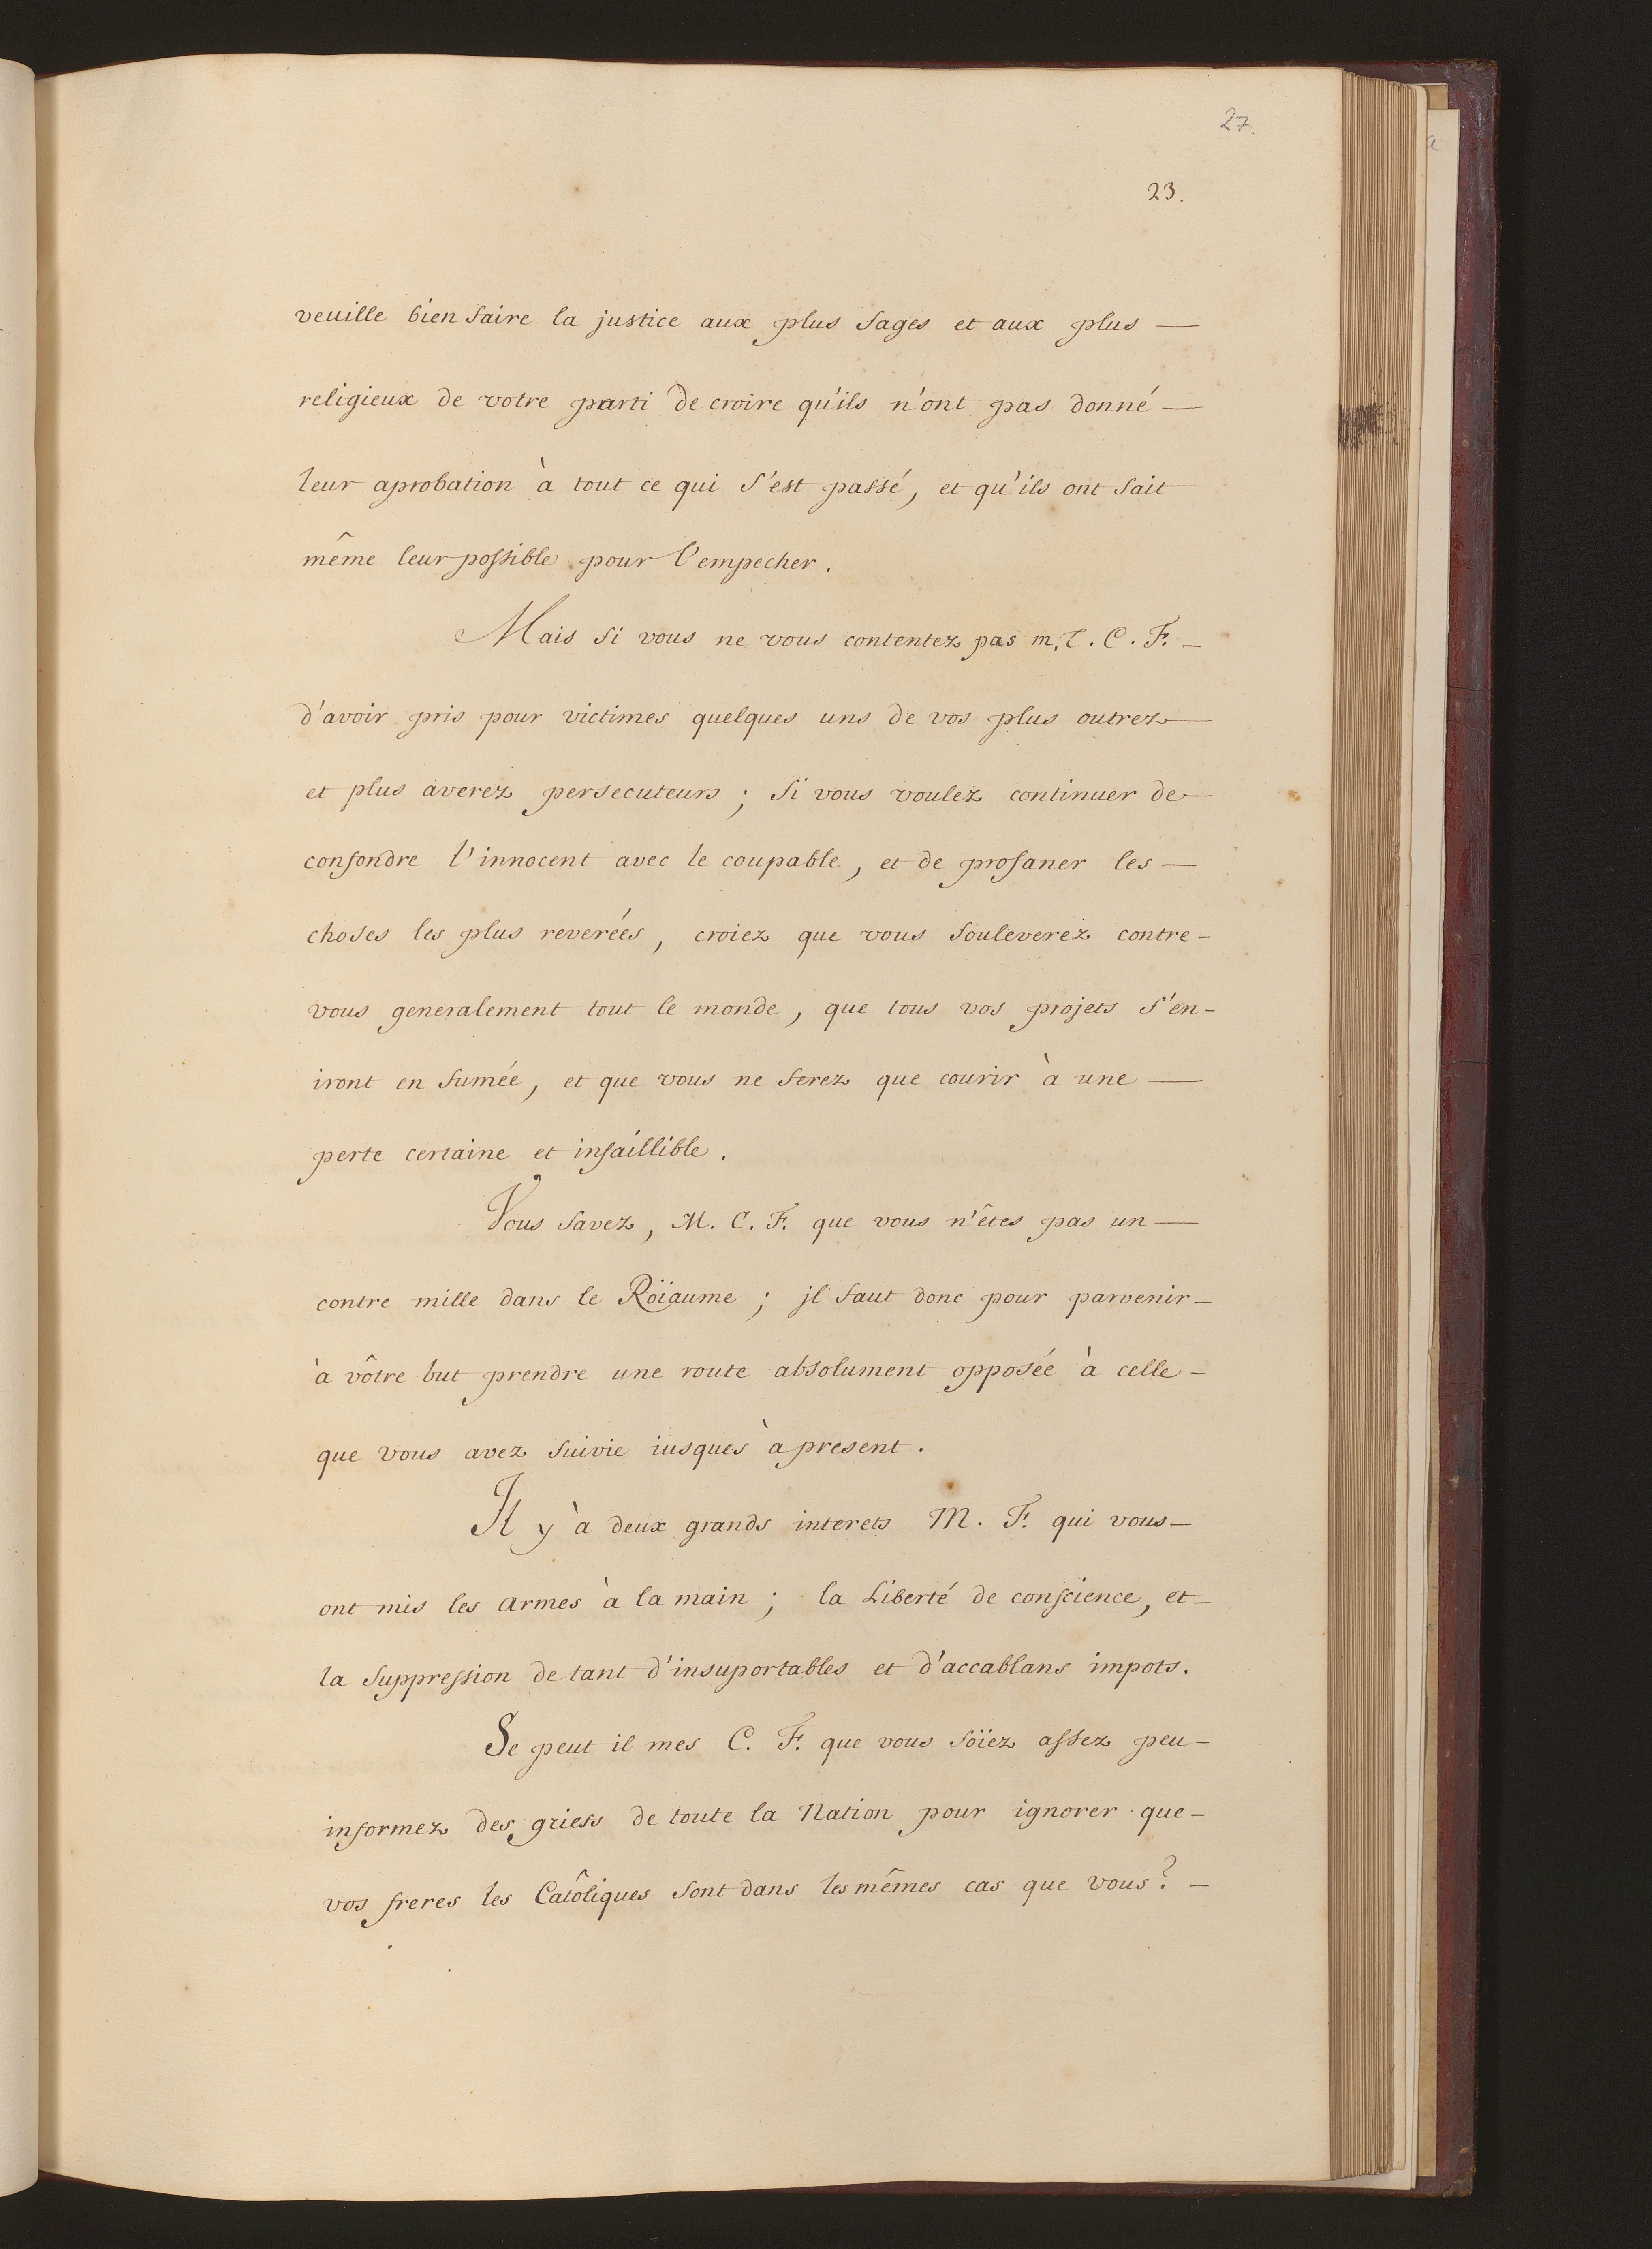 27.
23.
veuille bien faire la justice aux plus sages et aux plus —
religieux de votre parti de croire qu'ils n'ont pas donné —
leur aprobation à tout ce qui s'est passé, et qu'ils ont fait
même leur possible pour l'empecher.
Mais si vous ne vous contentez pas m. T. C. F. —
d'avoir pris pour victimes quelques uns de vos plus outrez —
et plus averez persecuteurs ; si vous voulez continuer de —
confondre l'innocent avec le coupable, et de profaner les —
choses les plus reverées, croiez que vous souleverez contre -
vous generalement tout le monde, que tous vos projets s'en -
iront en fumée, et que vous ne ferez que courir à une —
perte certaine et infaillible.
Vous savez, M. C. F. que vous n'êtes pas un —
contre mille dans le Roïaume ; jl faut donc pour parvenir —
à vôtre but prendre une route absolument opposée à celle -
que vous avez suivie iusques à present.
Il y à deux grands interets M. F. qui vous —
ont mis les armes à la main ; la Liberté de conscience, et —
la suppression de tant d'insuportables et d'accablans impots.
Se peut il mes C. F. que vous soïez assez peu -
informez des griefs de toute la Nation pour ignorer que -
vos freres les Catôliques sont dans les mêmes cas que vous ? —